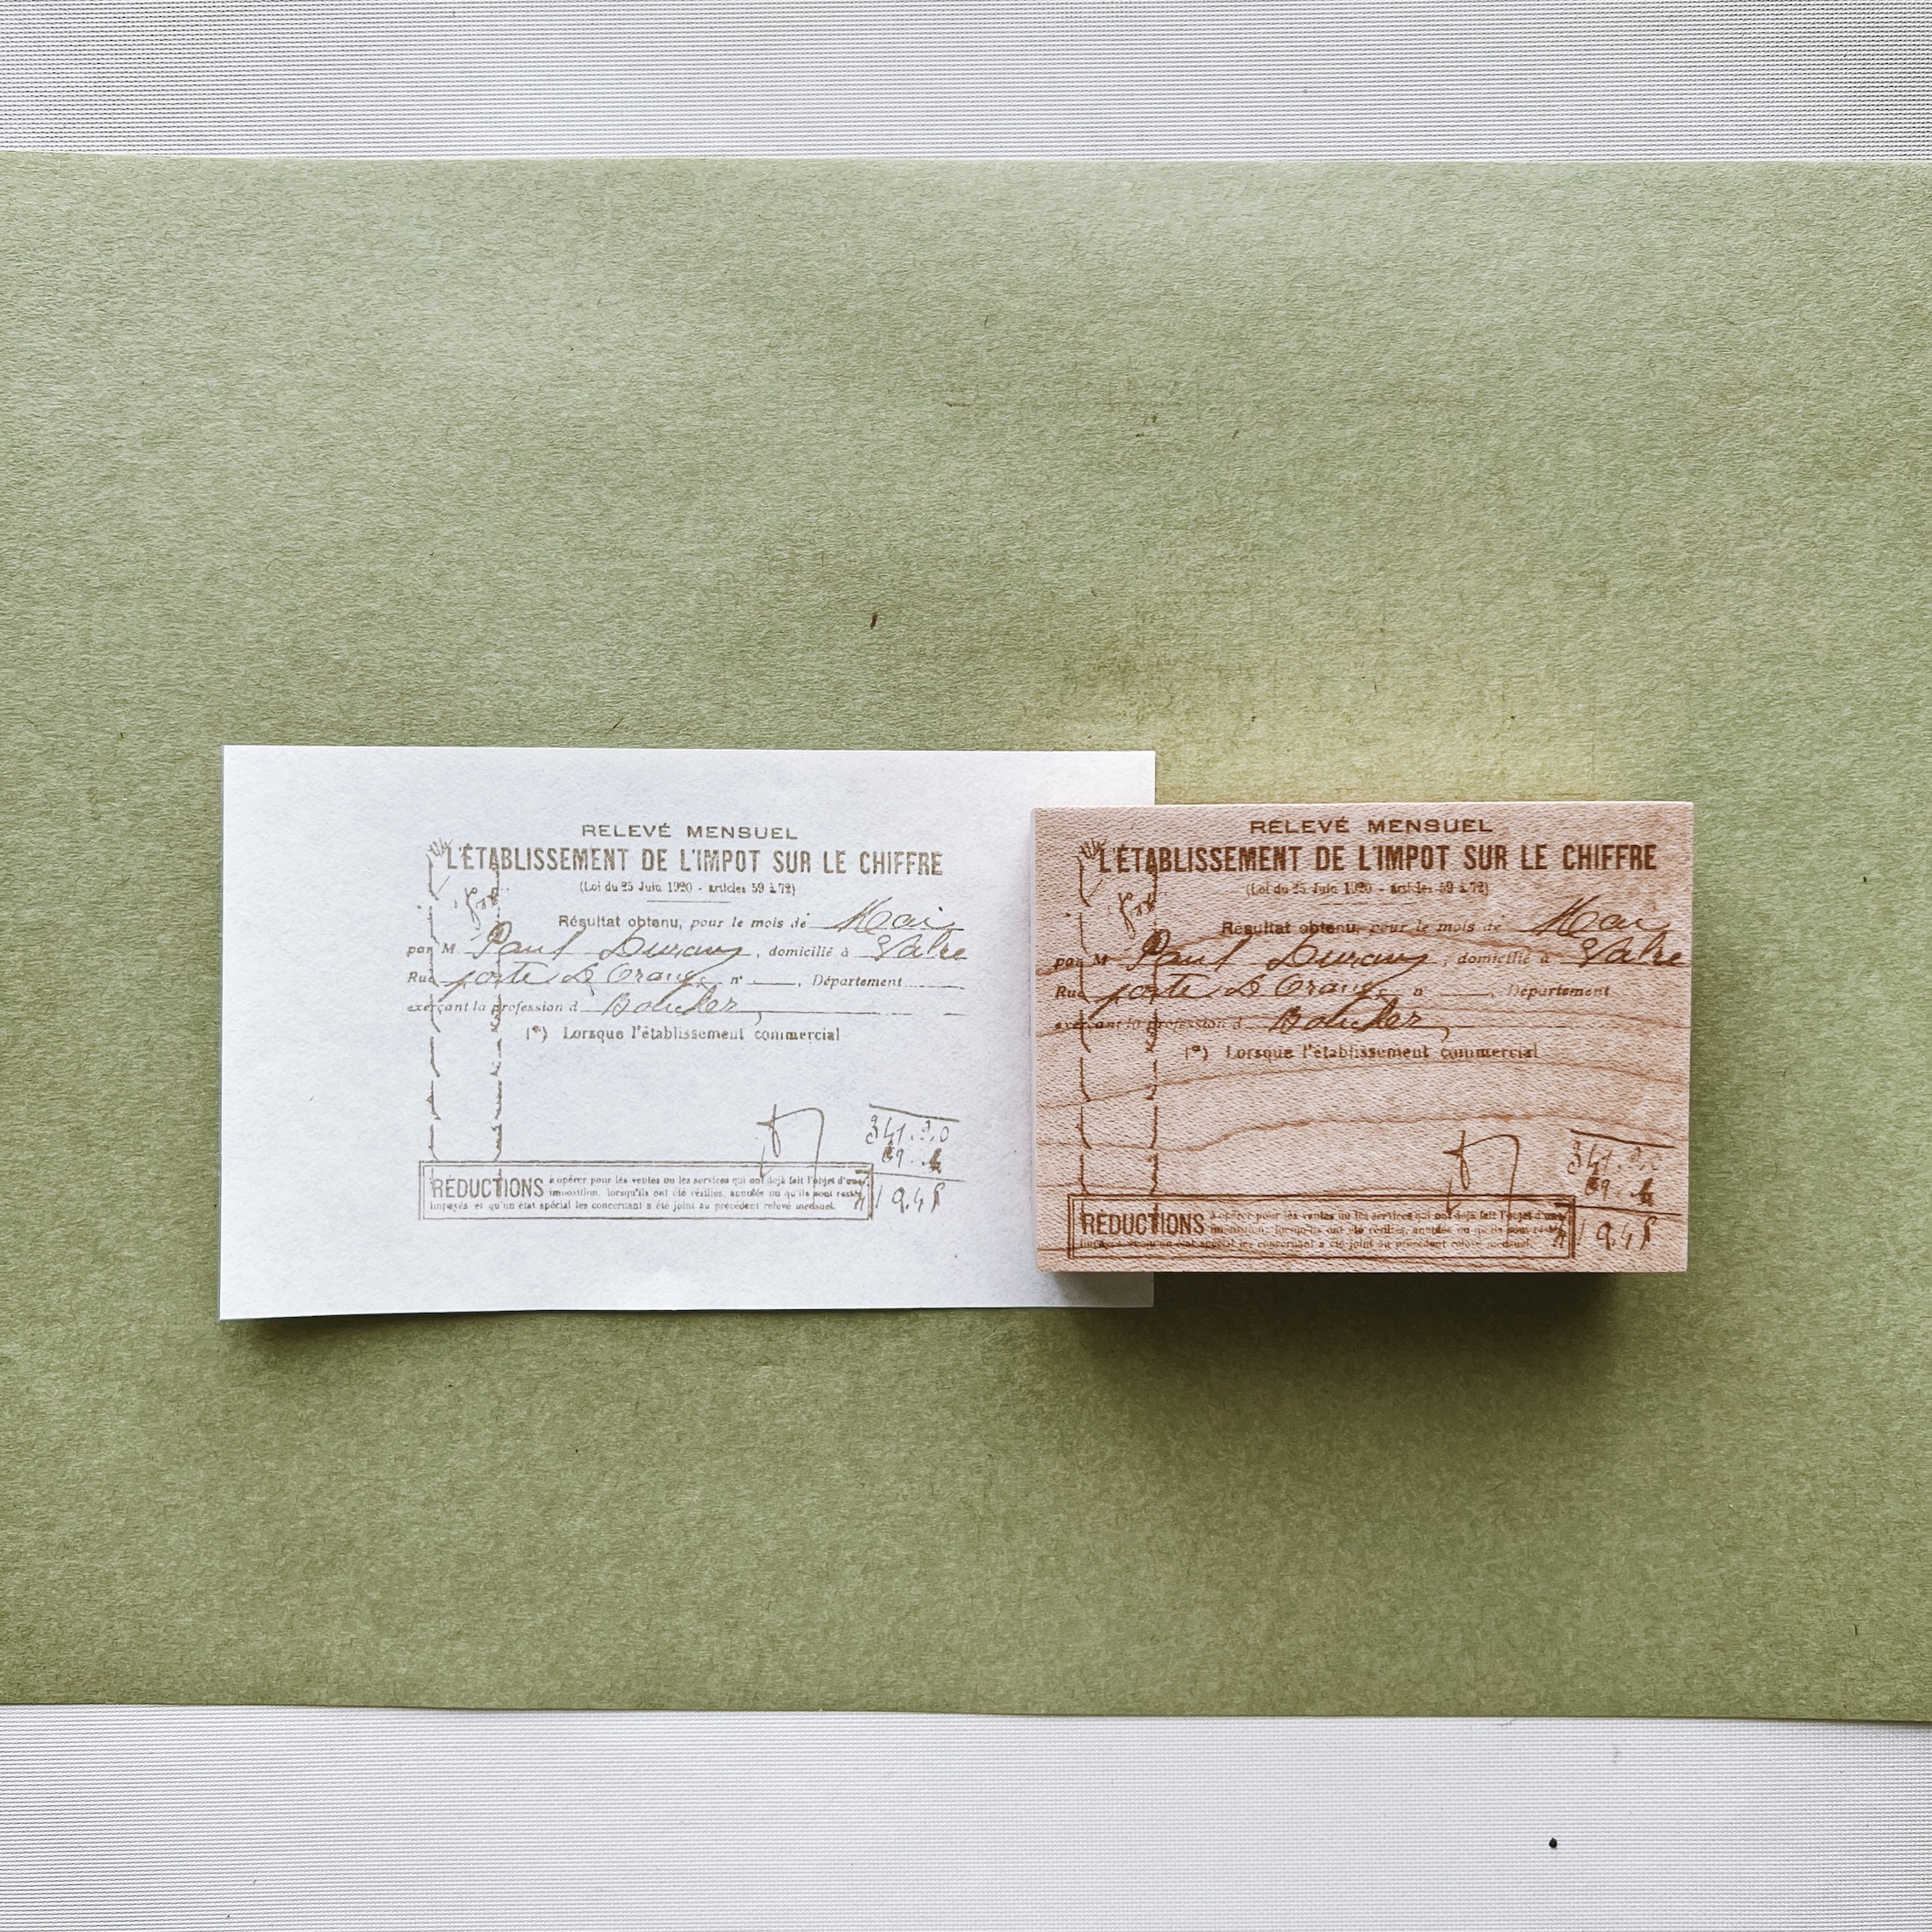 RELEVÉ MENSUEL
L'ÉTABLISSEMENT DE L'IMPOT SUR LE CHIFFRE
(Loi du 25 Juin 1920 - articles 59 à 72)
Résultat obtenu, pour le mois de Mai
par M Paul Durany, domicilié à
Rue porte D'Orange n° , Département
exerçant la profession d Boucher
(*) Lorsque l'établissement commercial
RÉDUCTIONS à opérer pour les ventes ou les services qui ont déjà fait l'objet d'une
imposition, lorsqu'ils ont été résiliés, annulés ou qu'ils sont restés
impayés et qu'un état spécial les concernant a été joint au précédent relevé mensuel.
RELEVÉ MENSUEL
L'ÉTABLISSEMENT DE L'IMPOT SUR LE CHIFFRE
(Loi du 25 Juin 1920 - articles 59 à 72)
Résultat obtenu, pour le mois de Mai
par M Paul Durany, domicilié à
Rue porte D'Orange n° , Département
exerçant la profession d Boucher
(*) Lorsque l'établissement commercial
RÉDUCTIONS à opérer pour les ventes ou les services qui ont déjà fait l'objet d'une
imposition, lorsqu'ils ont été résiliés, annulés ou qu'ils sont restés
impayés et qu'un état spécial les concernant a été joint au précédent relevé mensuel.